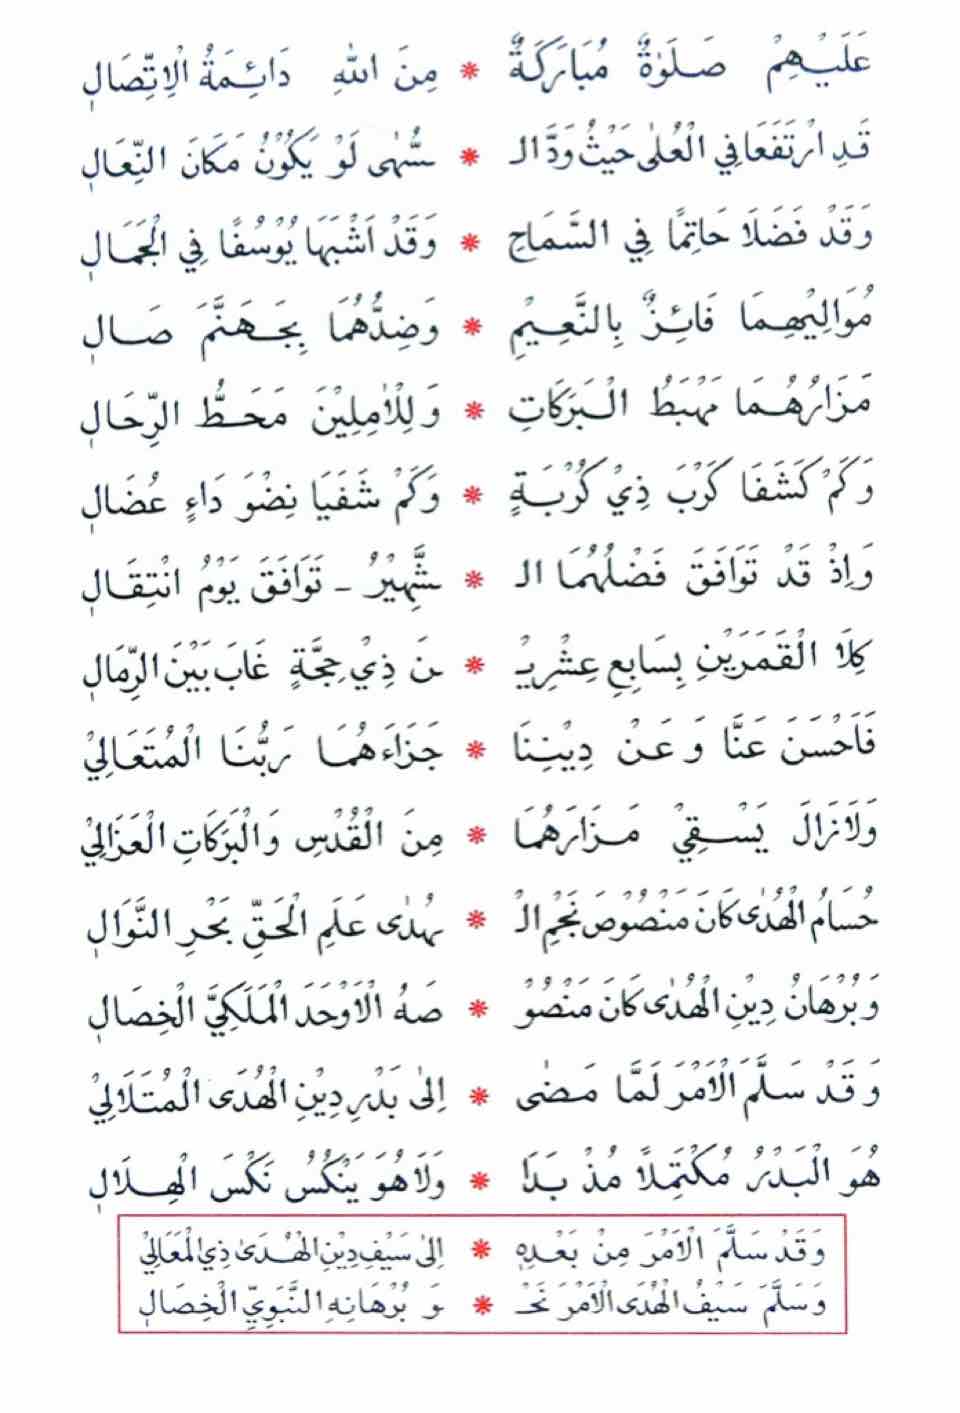 عَلَيْهِمْ صَلَوٰةٌ مُبَارَكَةٌ * مِنَ اللهِ دَائِمَةُ الْاِتِّصَالِ
قَدِ ارْتَفَعَا فِي الْعُلٰى حَيْثُ وَدَّ الـ * ـسُّهٰى لَوْ يَكُوْنُ مَكَانَ النِّعَالِ
وَقَدْ فَضَلَا حَاتِمًا فِي السَّمَاحِ * وَقَدْ اَشْبَهَا يُوْسُفًا فِي الْجَمَالِ
مُوَالِيْهِمَا فَائِزٌ بِالنَّعِيْمِ * وَضِدُّهُمَا بِجَهَنَّمَ صَالِ
مَزَارُهُمَا مَهْبَطُ الْبَرَكَاتِ * وَلِلْاٰمِلِيْنَ مَحَطُّ الرِّحَالِ
وَكَمْ كَشَفَا كَرْبَ ذِيْ كُرْبَةٍ * وَكَمْ شَفَيَا نِضْوَ دَاءٍ عُضَالِ
وَاِذْ قَدْ تَوَافَقَ فَضْلُهُمَا الـ * ـشَّهِيْرُ - تَوَافَقَ يَوْمُ انْتِقَالِ
كِلَا الْقَمَرَيْنِ بِسَابِعِ عِشْرِيْـ * ـنَ ذِيْ حِجَّةٍ غَابَ بَيْنَ الرِّمَالِ
فَاَحْسَنَ عَنَّا وَعَنْ دِيْنِنَا * جَزَاءَهُمَا رَبُّنَا الْمُتَعَالِيْ
وَلَازَالَ يَسْقِيْ مَزَارَهُمَا * مِنَ الْقُدْسِ وَالْبَرَكَاتِ الْعَزَالِيْ
حُسَامُ الْهُدٰى كَانَ مَنْصُوْصَ نَجْمِ الْـ * ـهُدٰى عَلَمِ الْحَقِّ بَحْرِ النَّوَالِ
وَبُرْهَانُ دِيْنِ الْهُدٰى كَانَ مَنْصُوْ * صَهُ الْاَوْحَدَ الْمَلَكِيَّ الْخِصَالِ
وَقَدْ سَلَّمَ الْاَمْرَ لَمَّا مَضٰى * اِلٰى بَدْرِ دِيْنِ الْهُدَى الْمُتَلَالِيْ
هُوَ الْبَدْرُ مُكْتَمِلًا مُذْ بَدَا * وَلَا هُوَ يَنْكُسُ نَكْسَ الْهِلَالِ
وَقَدْ سَلَّمَ الْاَمْرَ مِنْ بَعْدِهٖ * اِلٰى سَيْفِ دِيْنِ الْهُدٰى ذِي الْمَعَالِيْ
وَسَلَّمَ سَيْفُ الْهُدَى الْاَمْرَ نَحْـ * ـوَ بُرْهَانِهِ النَّبَوِيِّ الْخِصَالِ